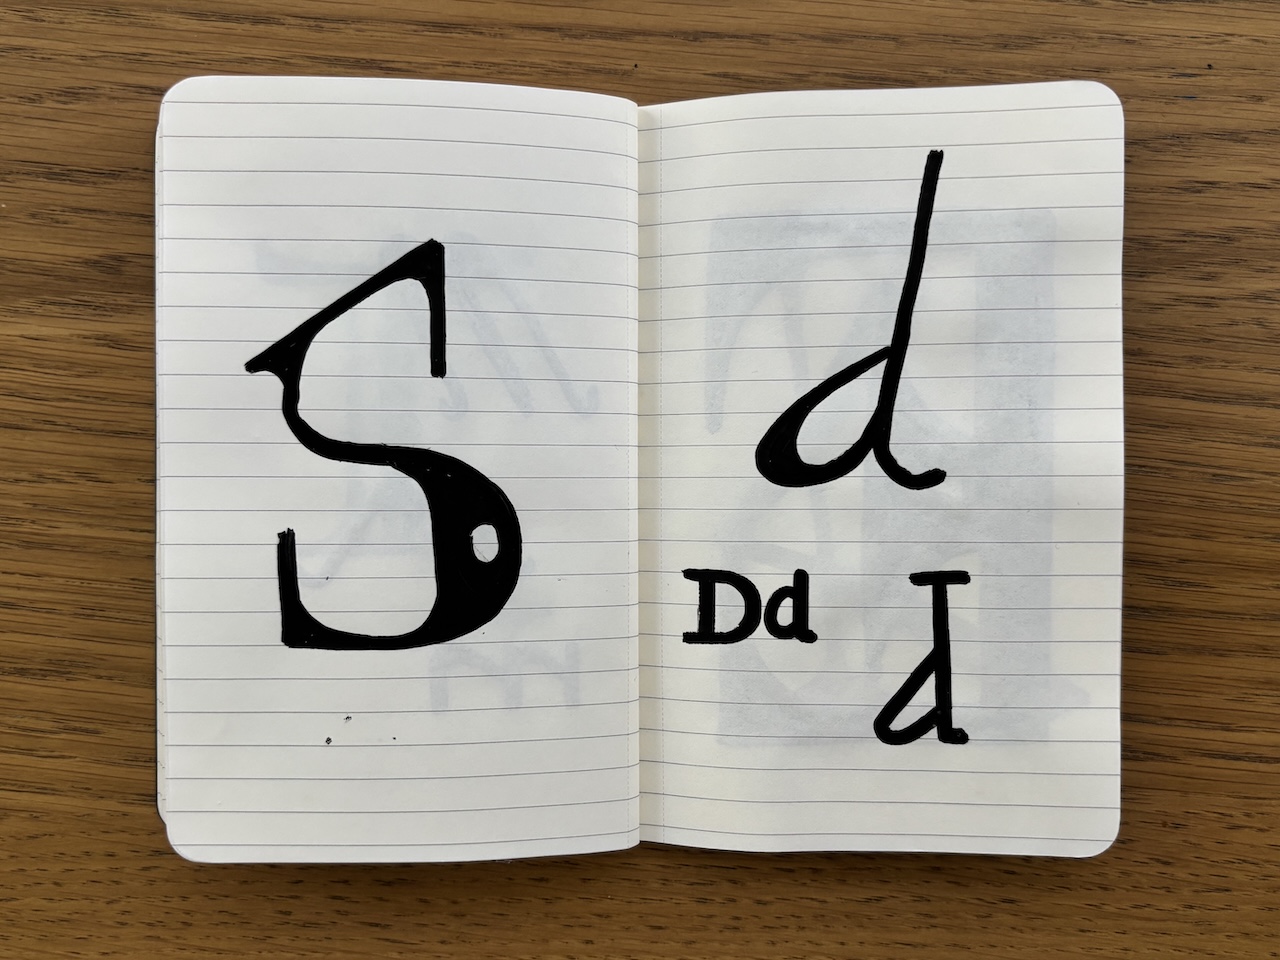 S
d
Dd
d